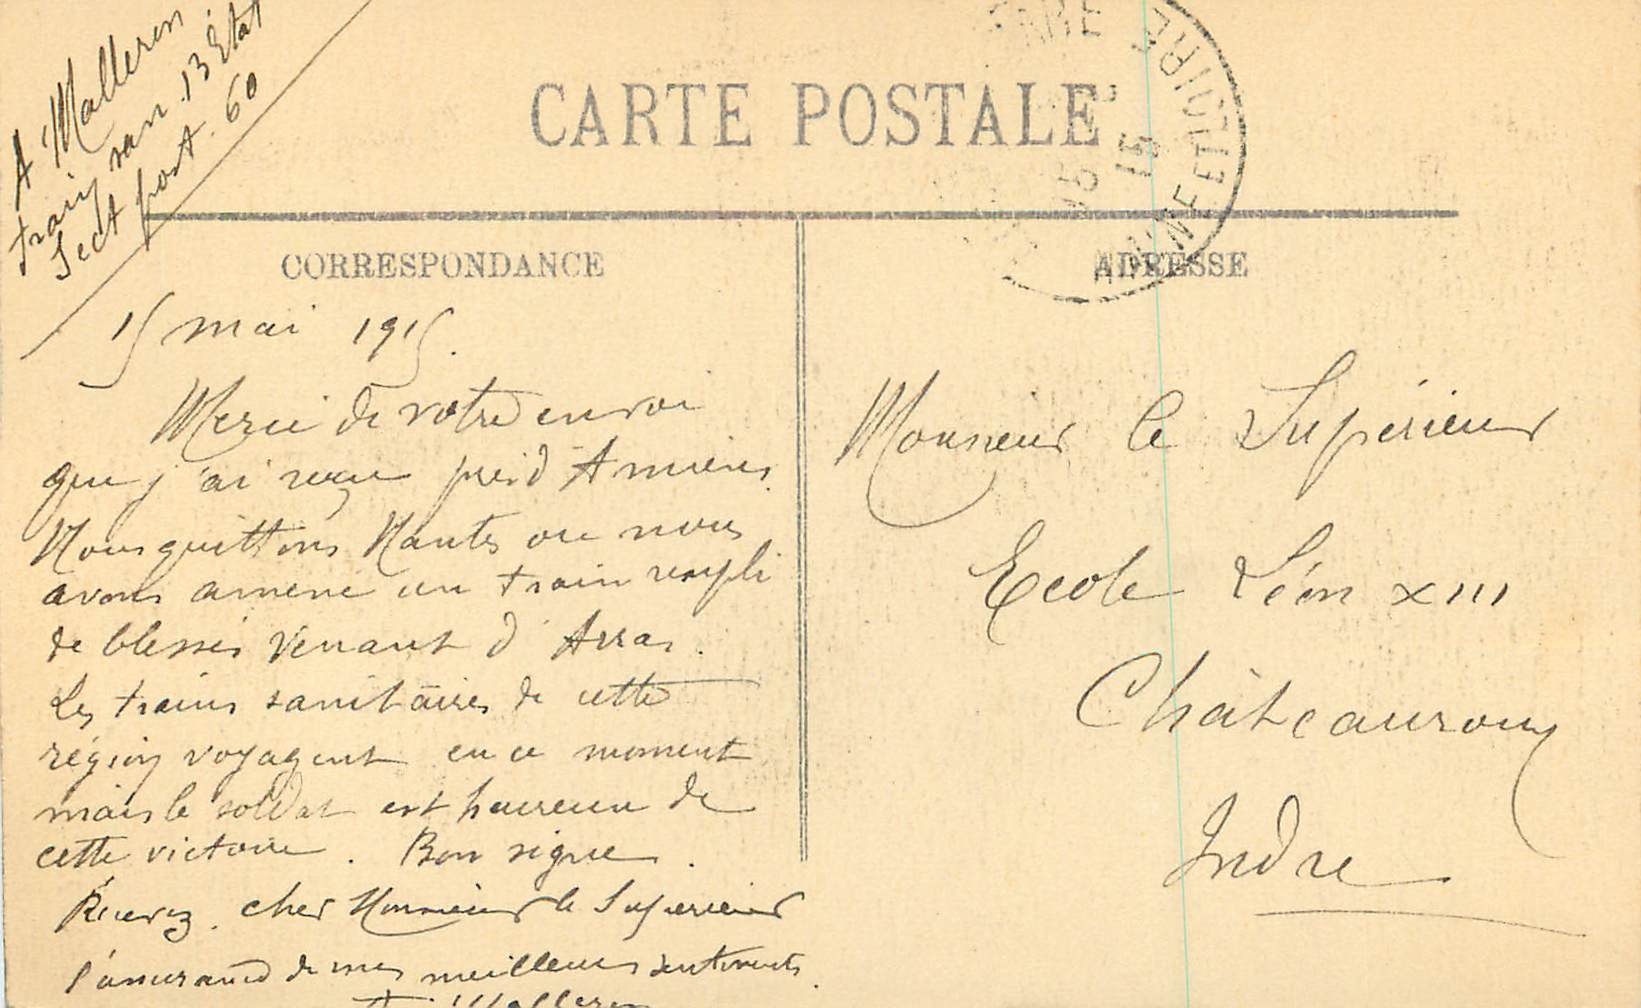 A Malleren
train san. 13 Etat
Sect post. 60
CARTE POSTALE
INDRE ET LOIRE
CORRESPONDANCE
ADRESSE
15 mai 1915.
Merci de votre envoi
que j'ai reçu près d'Amiens.
Nous quittons Nantes ou nous
avons amené un train rempli
de blessés venant d'Arras.
Les trains sanitaires de cette
région voyagent en ce moment
mais le soldat est heureux de
cette victoire. Bon signe.
Recevez, cher Monsieur le Superieur
l'assurance de mes meilleurs sentiments.
A. Malleren
Monsieur le Supérieur
Ecole Léon XIII
Châteauroux
Indre